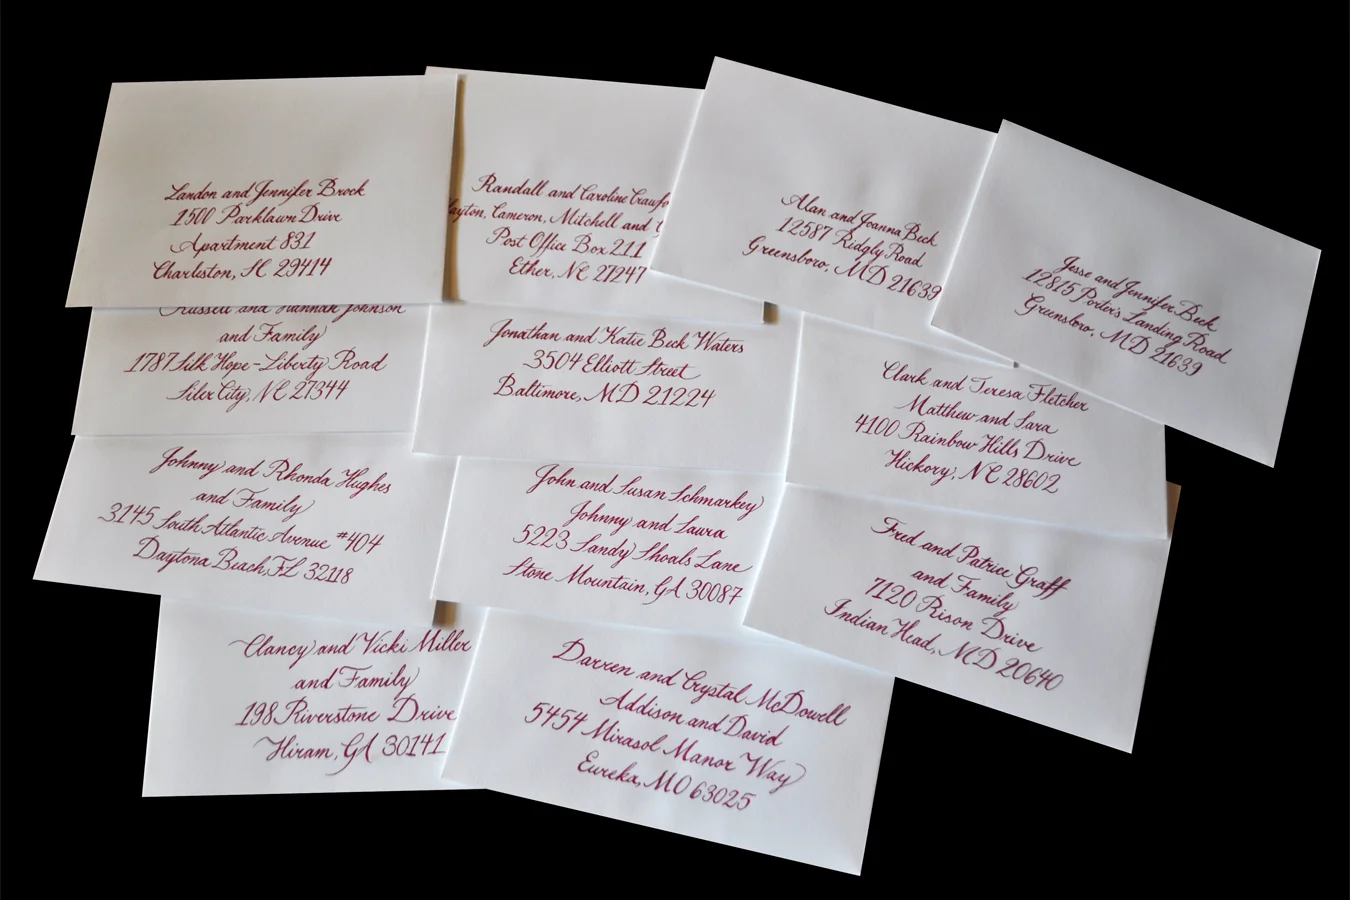 Landon and Jennifer Brock
1500 Parklawn Drive
Apartment 831
Charleston, SC 29414
Randall and Caroline
Cameron, Mitchell and
Post Office Box 211
Ether, NC 27247
Alan and Joanna Beck
12587 Ridgly Road
Greensboro, MD 21639
Jesse and Jennifer Beck
12815 Porter's Landing Road
Greensboro, MD 21639
Russell and Hannah Johnson
and Family
1787 Silk Hope-Liberty Road
Siler City, NC 27344
Jonathan and Katie Beck Waters
3504 Elliott Street
Baltimore, MD 21224
Clark and Teresa Fletcher
Matthew and Sara
4100 Rainbow Hills Drive
Hickory, NC 28602
Johnny and Rhonda Hughes
and Family
3145 South Atlantic Avenue #404
Daytona Beach, FL 32118
John and Susan Schmarkey
Johnny and Laura
5223 Sandy Shoals Lane
Stone Mountain, GA 30087
Fred and Patrice Graff
and Family
7120 Rison Drive
Indian Head, MD 20640
Clancy and Vicki Miller
and Family
198 Riverstone Drive
Hiram, GA 30141
Darren and Crystal McDowell
Addison and David
5454 Mirasol Manor Way
Eureka, MO 63025